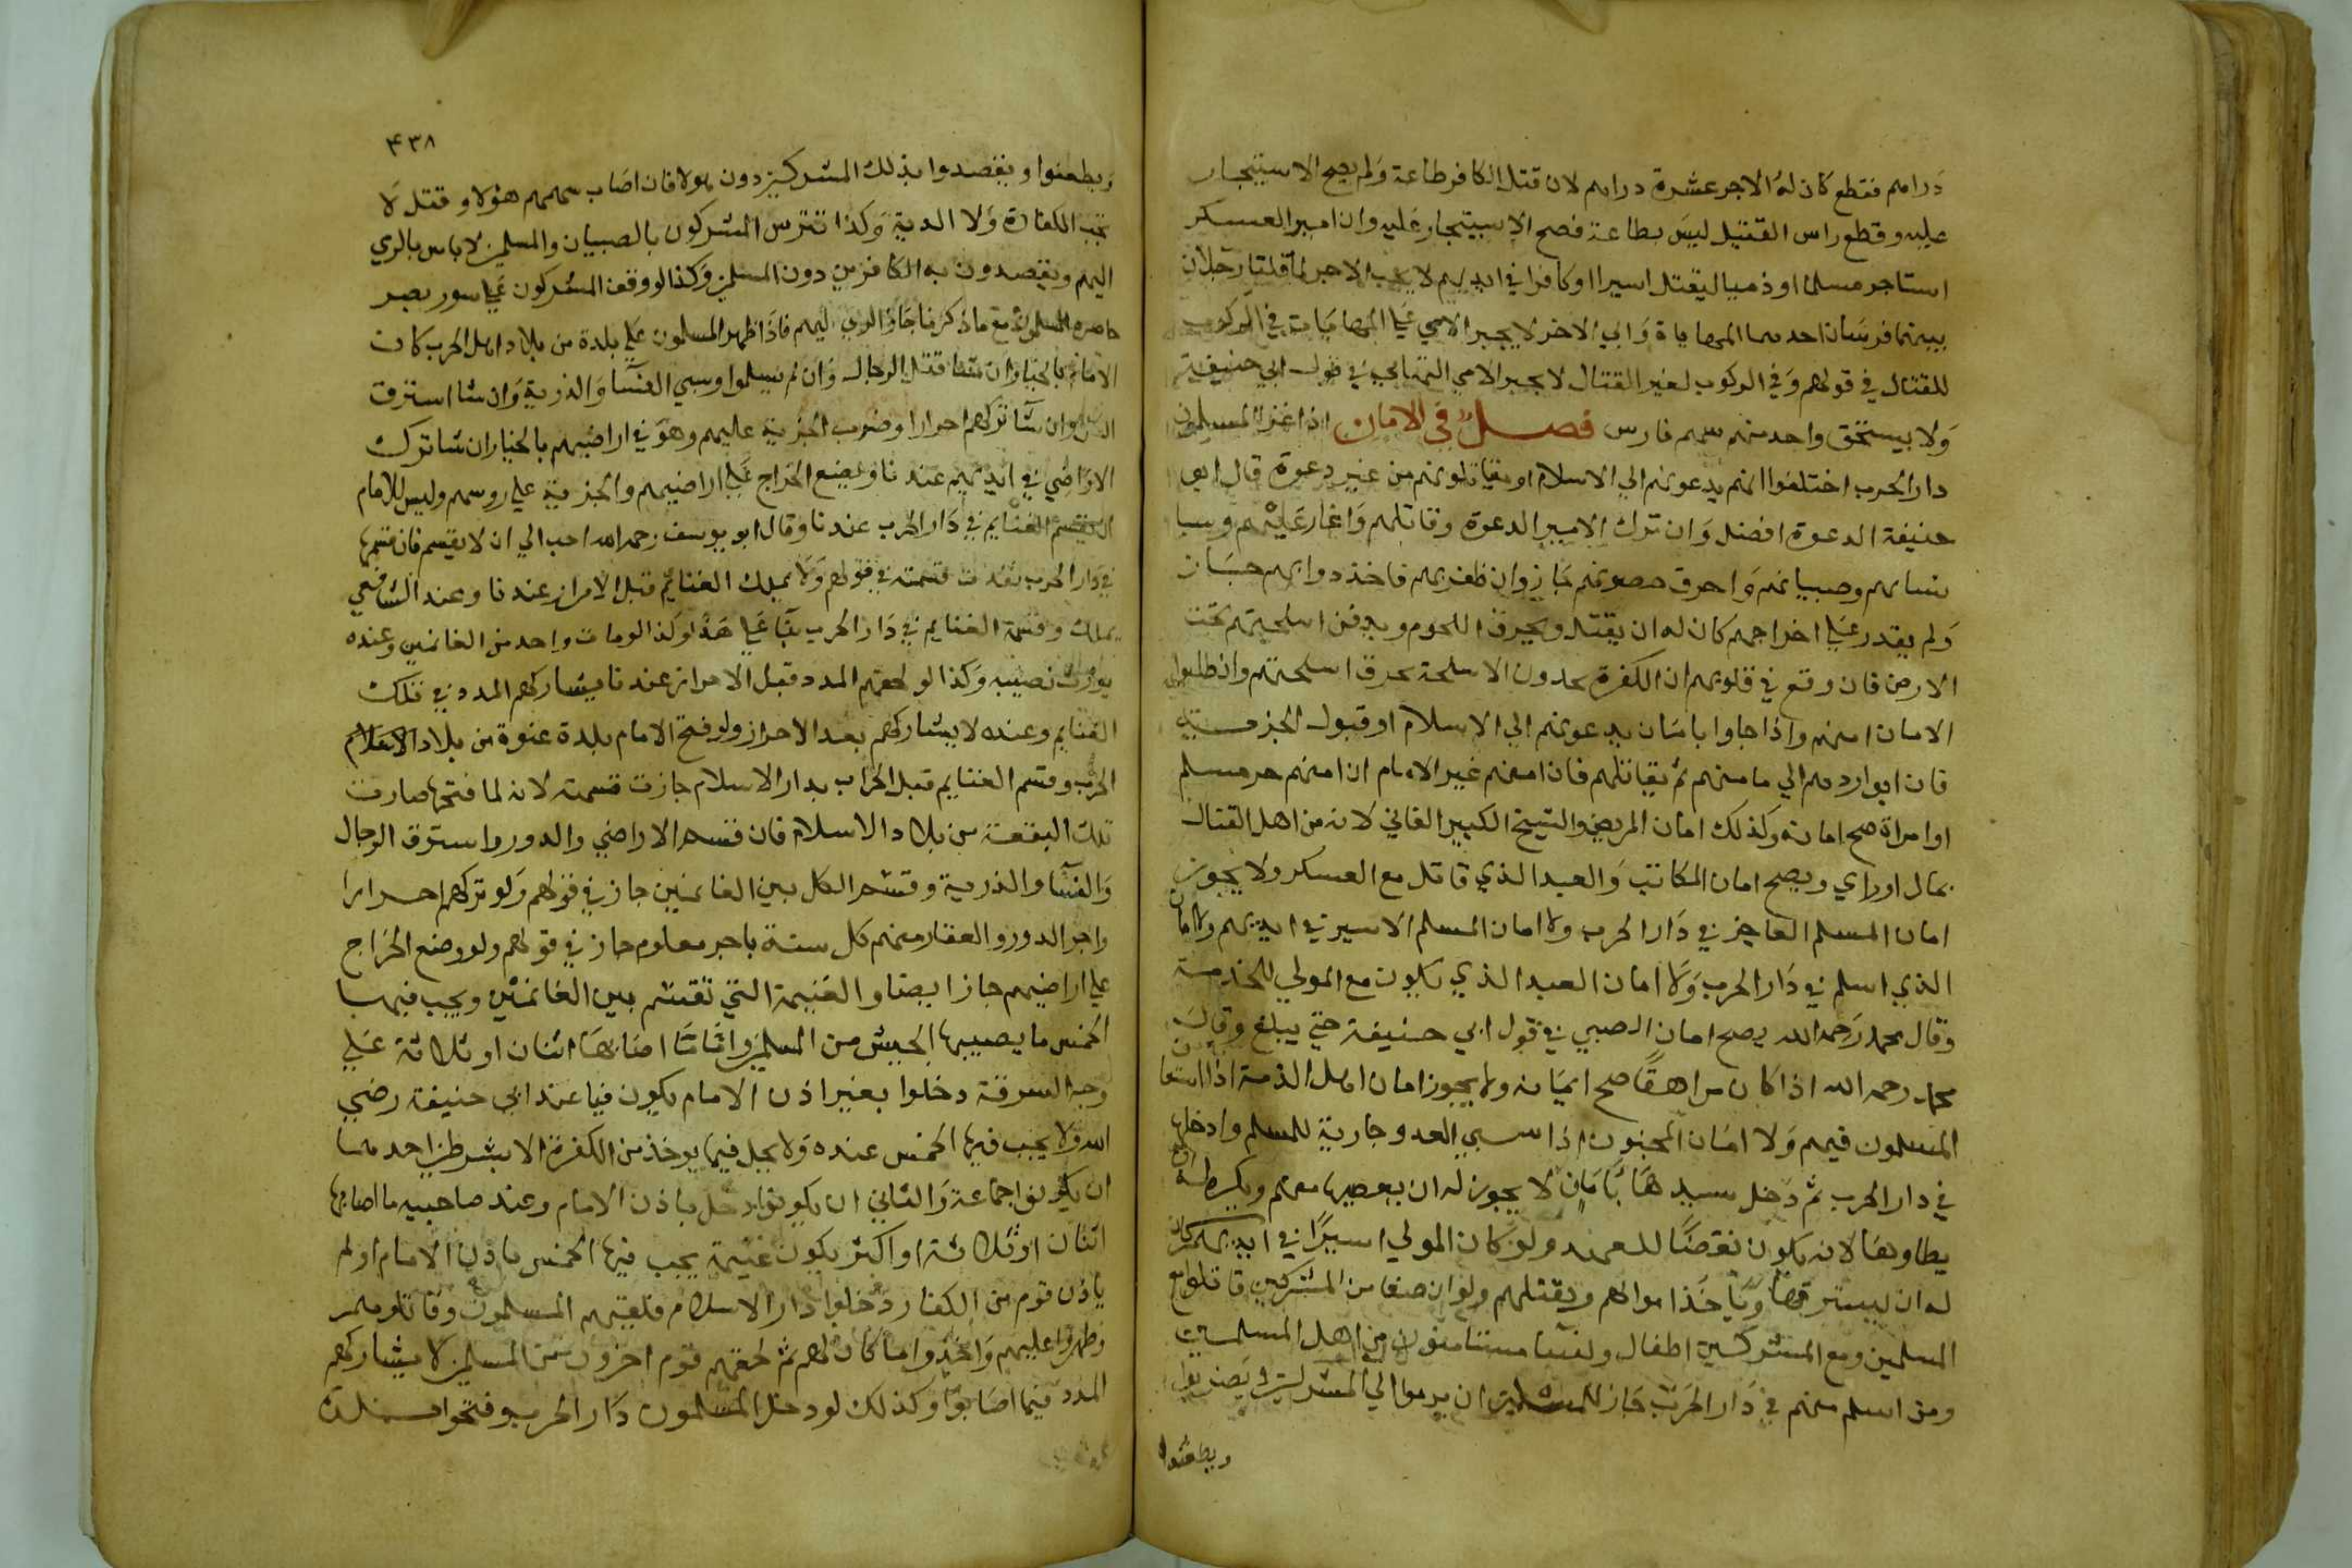 دراهم فقطع كان له الاجر عشرة دراهم لان قتل الكافر طاعة ولم يصح الاستيجار
عليه وقطع راس القتيل ليس بطاعة فصح الاستيجار عليه وان امير العسكر
استاجر مسلما او ذميا ليقتل اسيرا او كافرا في ايديهم لا يجب الاجر لما قلنا رجلان
بينهما فرسان احدهما المهاياة وابي الاخر لا يجبر الابي علي المهايات في الركوب
للقتال في قولهم وفي الركوب لغير القتال لا يجبر الابي في قول ابي حنيفة
ولا يستحق واحد منهم سهم فارس فصل في الامان اذا غزا المسلمون
دار الحرب اختلفوا انهم يدعونهم الي الاسلام او يقاتلونهم من غير دعوة قال ابو
حنيفة الدعوة افضل وان ترك الامير الدعوة وقاتلهم واغار عليهم وسبا
نساءهم وصبيانهم واحرق حصونهم جاز وان ظفر بهم فاخذ دوابهم
ولم يقدر علي اخراجهم كان له ان يقتل ويحرق اللحوم ويدفن اسلحتهم تحت
الارض فان وقع في قلوبهم ان الكفرة يجدون الاسلحة يحرق اسلحتهم وان طلبوا
الامان امنهم واذا جاوا بامان يدعونهم الي الاسلام او قبول الجزية
فان ابوا ردهم الي مامنهم ثم يقاتلهم فان امنهم غير الامام ان امنهم حر مسلم
او امراة صح امانه وكذلك امان المريض والشيخ الكبير الفاني لانه من اهل القتال
بمال او راي ويصح امان المكاتب والعبد الذي قاتل مع العسكر ولا يجوز
امان المسلم التاجر في دار الحرب ولا امان المسلم الاسير في ايديهم ولا امان
الذي اسلم في دار الحرب ولا امان العبد الذي يكون مع المولي للخدمة
وقال محمد رحمه الله يصح امان الصبي في قول ابي حنيفة حتي يبلغ وقال
محمد رحمه الله اذا كان مراهقا صح ايمانه ولا يجوز امان اهل الذمة اذا استعان
المسلمون فيهم ولا امان المجنون اذا سبي العدو جارية للمسلم وادخلها
في دار الحرب ثم دخل سيدها بامان لا يجوز له ان يغصبها منهم ويكره له ان
يطاوها لانه يكون نقضا للعهد ولو كان المولي اسيرا في ايديهم كان
له ان يسترقها وياخذ اموالهم ويقتلهم ولو ان صفا من المشركين قاتلوا مع
المسلمين ومع المشركين اطفال ونسا مستامنون من اهل المسلمين
ومن اسلم منهم في دار الحرب جاز للمسلمين ان يرموا الي المشركين ويضربوا
ويطعنوا
٤٣٨
ويطعنوا ويقصدوا بذلك المشركين دون هولا فان اصاب سهمهم هؤلا وقتل لا
تجب الكفارة ولا الدية وكذا تترس المشركون بالصبيان والمسلمين لا باس بالرمي
اليهم ويقصدون به الكافرين دون المسلمين وكذا لو وقف المشركون علي سور
حاصره المسلمون مع ما ذكرنا جاز الرمي اليهم فاذا ظهر المسلمون علي بلدة من بلاد اهل الحرب كان
الامام بالخيار ان شا قتل الرجال وان لم يسلموا وسبي النسا والذرية وان شا استرق
وان شا تركهم احرارا وضرب الجزية عليهم وهو في اراضيهم بالخيار ان شا ترك
الاراضي في ايديهم عندنا ويضع الخراج علي اراضيهم والجزية علي روسهم وليس للامام
ان يقسم الغنايم في دار الحرب عندنا وقال ابو يوسف رحمه الله احب الي ان لا يقسم فان قسمها
في دار الحرب نفذت قسمته في قولهم ولا يملك الغنايم قبل الاحراز عندنا وعند الشافعي
يملك وقسمة الغنايم في دار الحرب بنا علي هذا وكذا لو مات واحد من الغانمين وعنده
يورث نصيبه وكذا لو لحقهم المدد قبل الاحراز عندنا يشاركهم المدد في تلك
الغنايم وعنده لا يشاركهم بعد الاحراز ولو فتح الامام بلدة عنوة من بلاد الاسلام
الحرب وقسم الغنايم قبل بدار الاسلام جازت قسمته لانه لما فتحها صارت
تلك البقعة من بلاد الاسلام فان قسم الاراضي والدور واسترق الرجال
والنسا والذرية وقسم الكل بين الغانمين جاز في قولهم ولو تركهم احرارا
واجر الدور والعقار منهم كل سنة باجر معلوم جاز في قولهم ولو وضع الخراج
علي اراضيهم جاز ايضا والغنيمة التي تقسم بين الغانمين ويجب فيها
الخمس ما يصيبها الجيش من المسلمين واما ما اصابها اثنان او ثلاثة علي
وجه السرقة دخلوا بغير اذن الامام يكون فيا عند ابي حنيفة رضي
الله ولا يجب فيها الخمس عنده ولا يحل فيما يوخذ من الكفرة الا بشرطين احدهما
ان يكونوا جماعة والثاني ان يكونوا دخل باذن الامام وعند صاحبيه ما اصابها
اثنان او ثلاثة او اكثر يكون غنيمة يجب فيها الخمس باذن الامام او لم
ياذن قوم من الكفار دخلوا دار الاسلام فلقيهم المسلمون وقاتلوهم
وظهروا عليهم واخذوا ما كان لهم ثم لحقهم قوم اخرون من المسلمين لا يشاركهم
المدد فيما اصابوا وكذلك لو دخل المسلمون دار الحرب وفتحوا بلدة